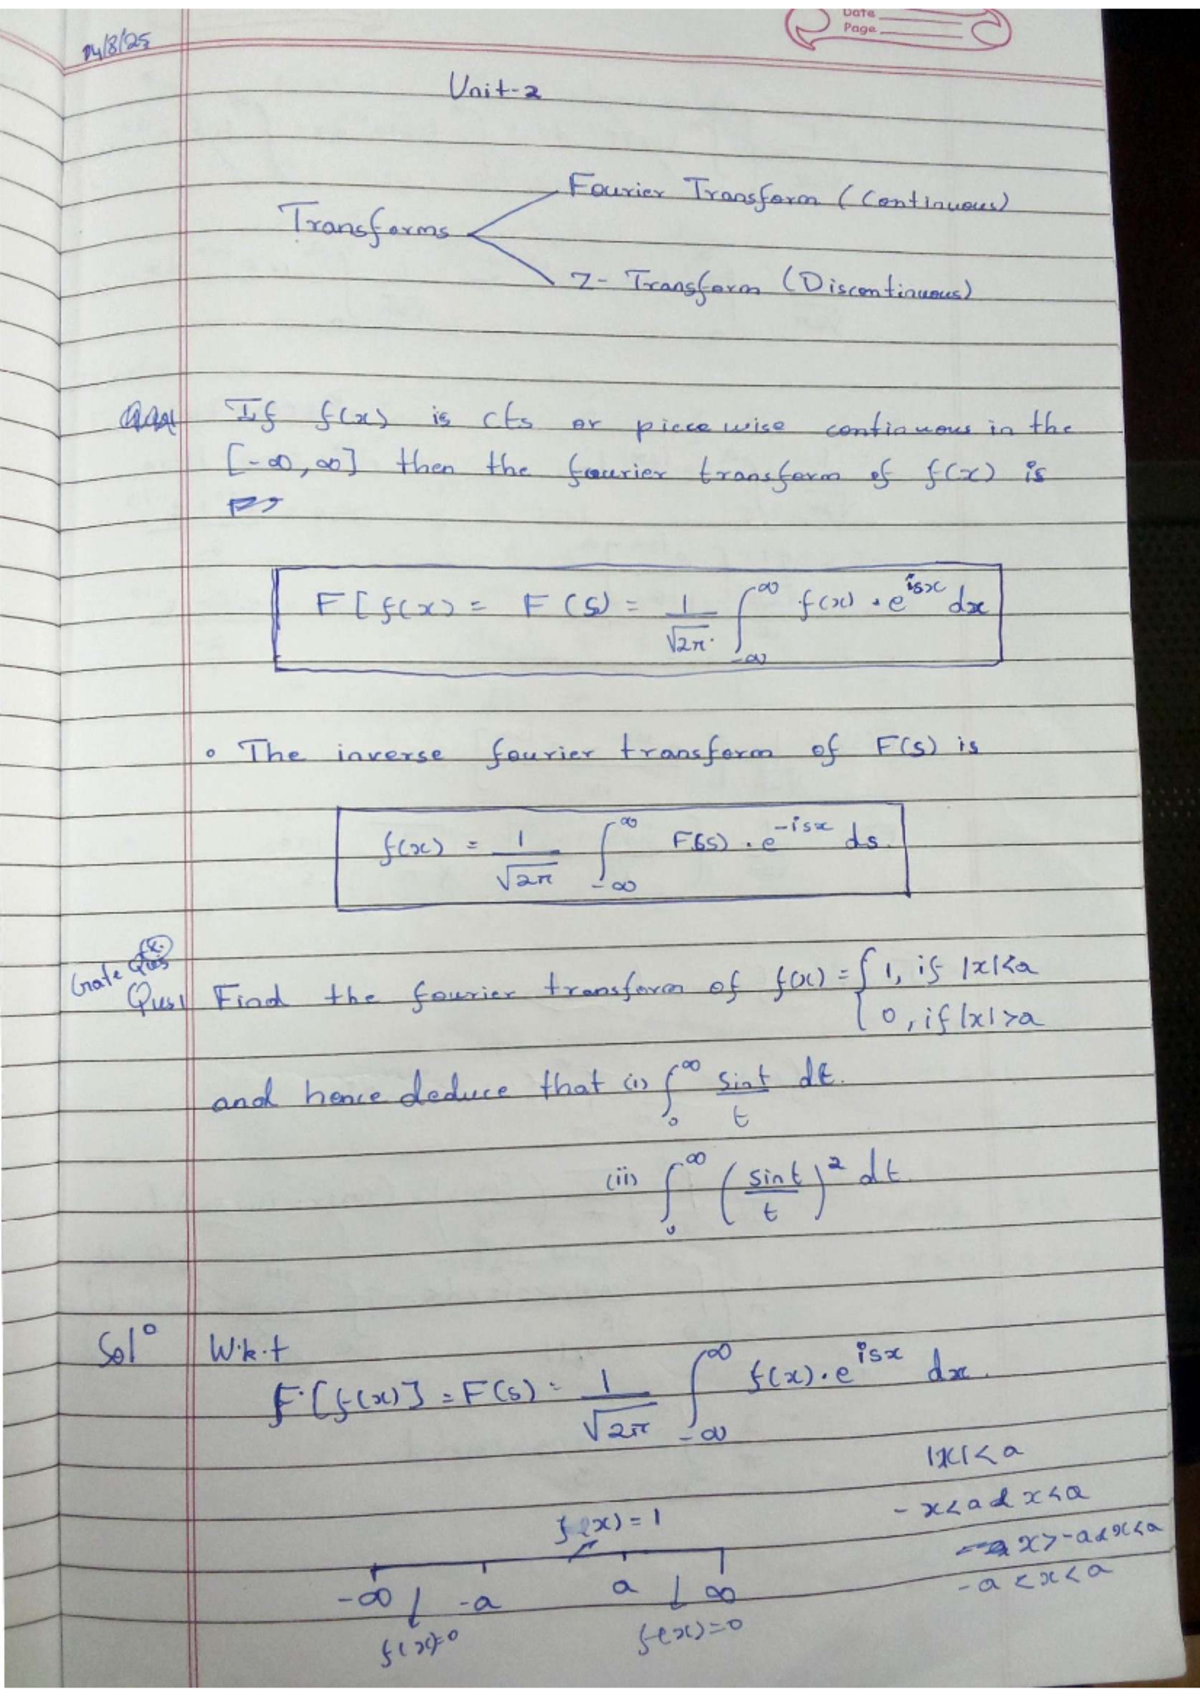 Date
Page
14/8/25
Unit-2
Fourier Transform (Continuous)
Transforms
Z- Transform (Discontinuous)
If f(x) is cts or piece wise continuous in the
[-∞, ∞] then the fourier transform of f(x) is
F[f(x) = F(s) = 1/√2π ∫_{-∞}^{∞} f(x) · e^{isx} dx
• The inverse fourier transform of F(s) is
f(x) = 1/√2π ∫_{-∞}^{∞} F(s) · e^{-isx} ds.
Gate Ques
Qus1 Find the fourier transform of f(x) = { 1, if |x|<a
0, if |x|>a
and hence deduce that (i) ∫_0^∞ sint/t dt.
(ii) ∫_0^∞ (sint/t)^2 dt.
Sol° W.k.t
F[f(x)] = F(s) = 1/√2π ∫_{-∞}^{∞} f(x) · e^{isx} dx.
|x|<a
- x<a d x<a
x>-a d x<a
-a<x<a
f(x)=1
-∞ -a a ∞
f(x)=0 f(x)=0